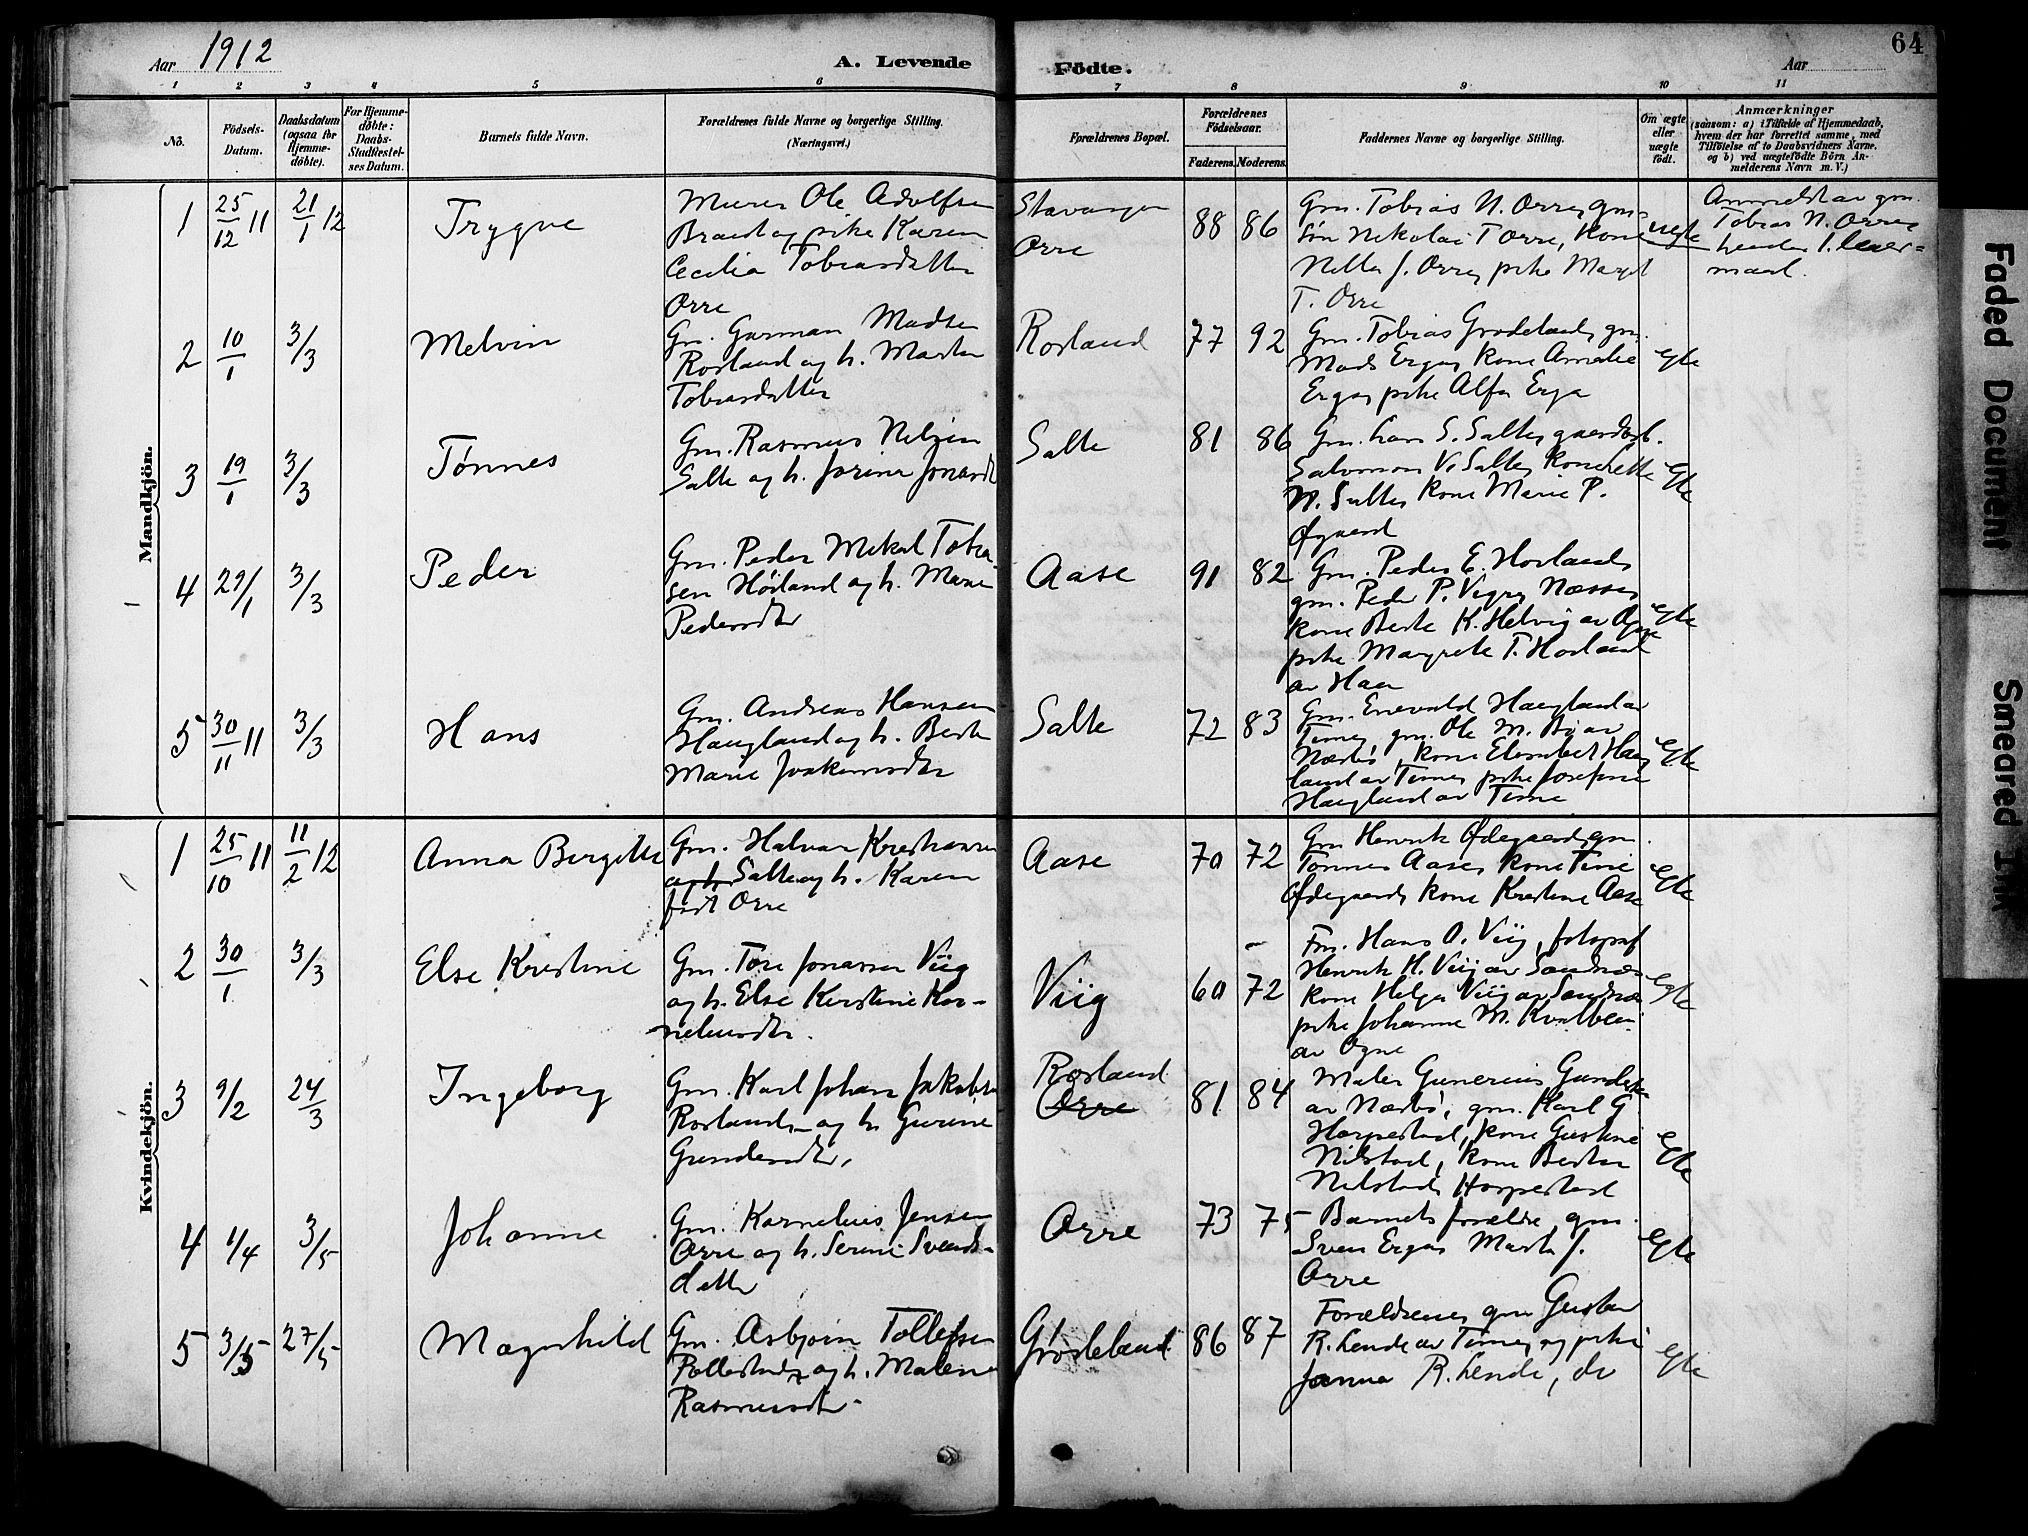 Aar 1912
A. Levende
Födte.
Aar
64
1 2 3 4 5 6 7 8 9 10 11
No.
Födsels-Datum.
Daabsdatum (ogsaa for Hjemme-döbte).
For Hjemme-döbte: Daabs-Stadfæstel-ses Datum.
Barnets fulde Navn.
Forældrenes fulde Navne og borgerlige Stilling.
(Næringsvei.)
Forældrenes Bopæl.
Forældrenes Födselsaar.
Faderens. Moderens.
Faddernes Navne og borgerlige Stilling.
Om ægte eller uægte födt.
Anmærkninger
(saasom: a) i Tilfælde af Hjemmedaab,
hvem der har forrettet samme, med
Tilföielse af to Daabsvidners Navne.
og b) ved uægtefödte Börn An-
melderens Navn m. V.)
Mandkjön.
1 25/12 11 21/1 12 Trygve
Murer Ole Adolfsen
Braut og pike Karen
Cecilia Tobiasdatter
Orre
Stavanger
Orre
88 86
Gm. Tobias N. Orre, gm.
søn Nikolai T Orre, Kone
Nella J. Orre, pike Margit
T. Orre
uegte
Anmeldt av gm.
Tobias N. Orre
2 10/1 3/3 Melvin
Gm. Garman Madsen
Rosland og h. Marta
Tobiasdatter
Rosland
77 92
Gm. Tobias Grødeland, gm.
Mads Erga, kone Amalie
Erga, pike Alfa Erga
egte
3 19/1 3/3 Tønnes
Gm. Rasmus Nelsen
Salte og h. Jorine Jonasdt
Salte
81 86
Gm. Lars S. Salte, gaardarb.
Salomon V. Salte, Kone
N. Salte, kone Marie P.
Øgaard
Egte
4 29/1 3/3 Peder
Gm. Peder Mikal Tobia-
sen Hörland og h. Marie
Pedersdtr
Aase
91 82
Gm. Peder E. Horland,
gm. Peder P. Vigre, Næsse,
kone Berte K. Helvig av Ogne
pike Margrete T. Horland
av Haa
Egte
5 30/11 11 3/3 Hans
Gm. Andreas Hansen
Haugland og h. Berte
Marie Joakimsdtr
Salte
72 83
Gm. Enevald Haugland av
Time, gm. Ole M. Bø av
Nærbø, kone Elisabet Haug
land av Time, pike Josefine
Haugland av Time
Egte
Kvindekjön.
1 25/10 11 11/2 12 Anna Bergitte
Gm. Halvar Kristiansen
og h. Salte og h. Karen
født Orre
Aase
70 72
Gm Henrik Ødegaard, gm.
Tønnes Aase, kone Tine
Ødegaard, kone Kristine Aase
Egte
2 30/1 3/3 Else Kristine
Gm. Tore Jonassen Viig
og h. Else Kristine Kor-
neliusdtr.
Viig
60 72
Fm. Hans O. Viig, fotograf
Henrik H. Viig av Sandnæs
kone Helga Viig av Sandnæs
pike Johanne M. Kvalbein
av Ogne
Egte
3 9/2 24/3 Ingeborg
Gm. Karl Johan Jakobsen
Rosland og h. Gurine
Gundersdtr,
Rosland
Orre
81 84
Maler Gunerius Gundersen
av Nærbø, gm. Karl G
Harpestad, kone Gustine
Nilstad, kone Berta
Nilstad, Harpestad
Egte
4 1/4 3/5 Johanne
Gm. Kornelius Jensen
Orre og h. Serine Svends-
datter
Orre
73 75
Barnets forældre, gm.
Sven Erga, Marta J.
Orre
Egte
5 3/5 27/5 Magnhild
Gm. Asbjørn Tollefsen
Pollestad og h. Malene
Rasmusdtr.
Grødeland
86 87
Forældrene, gm Gustav
R. Lende av Time, og pike
Janna R. Lende, do
Egte
Faded Document
Smeared Ink